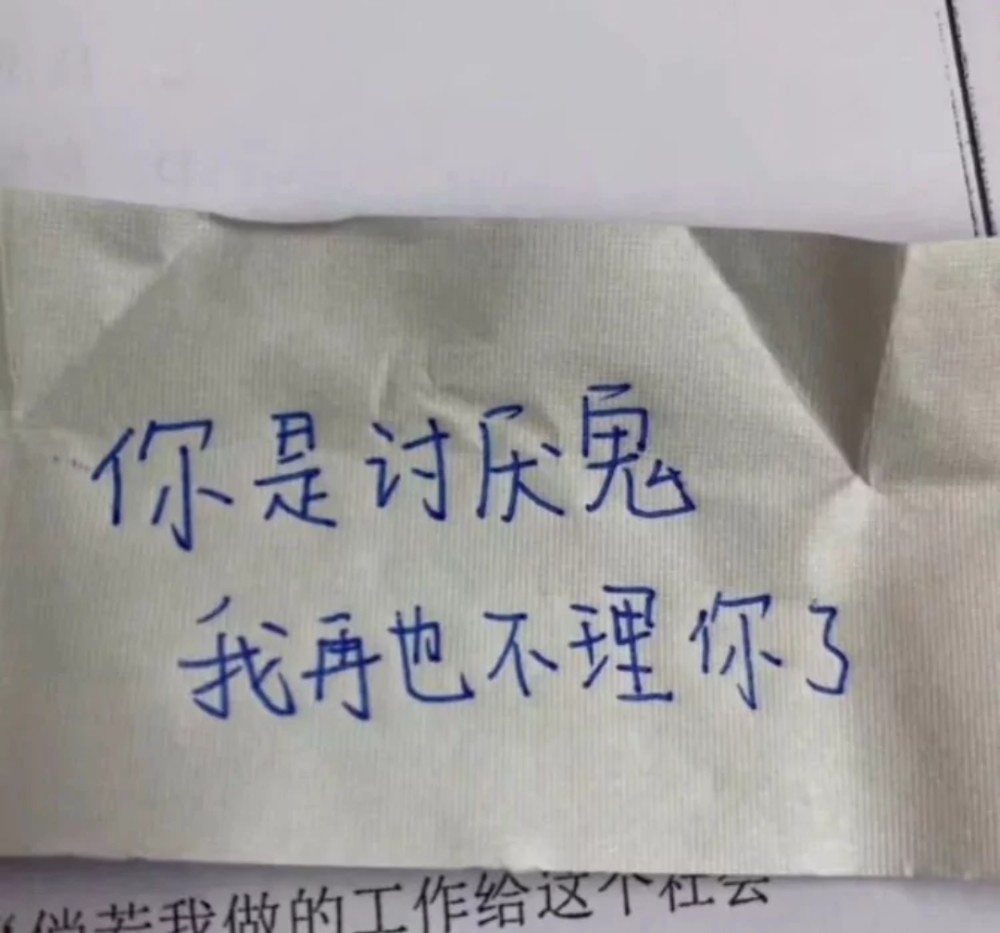 你是讨厌鬼
我再也不理你了
倘若我做的工作给这个社会